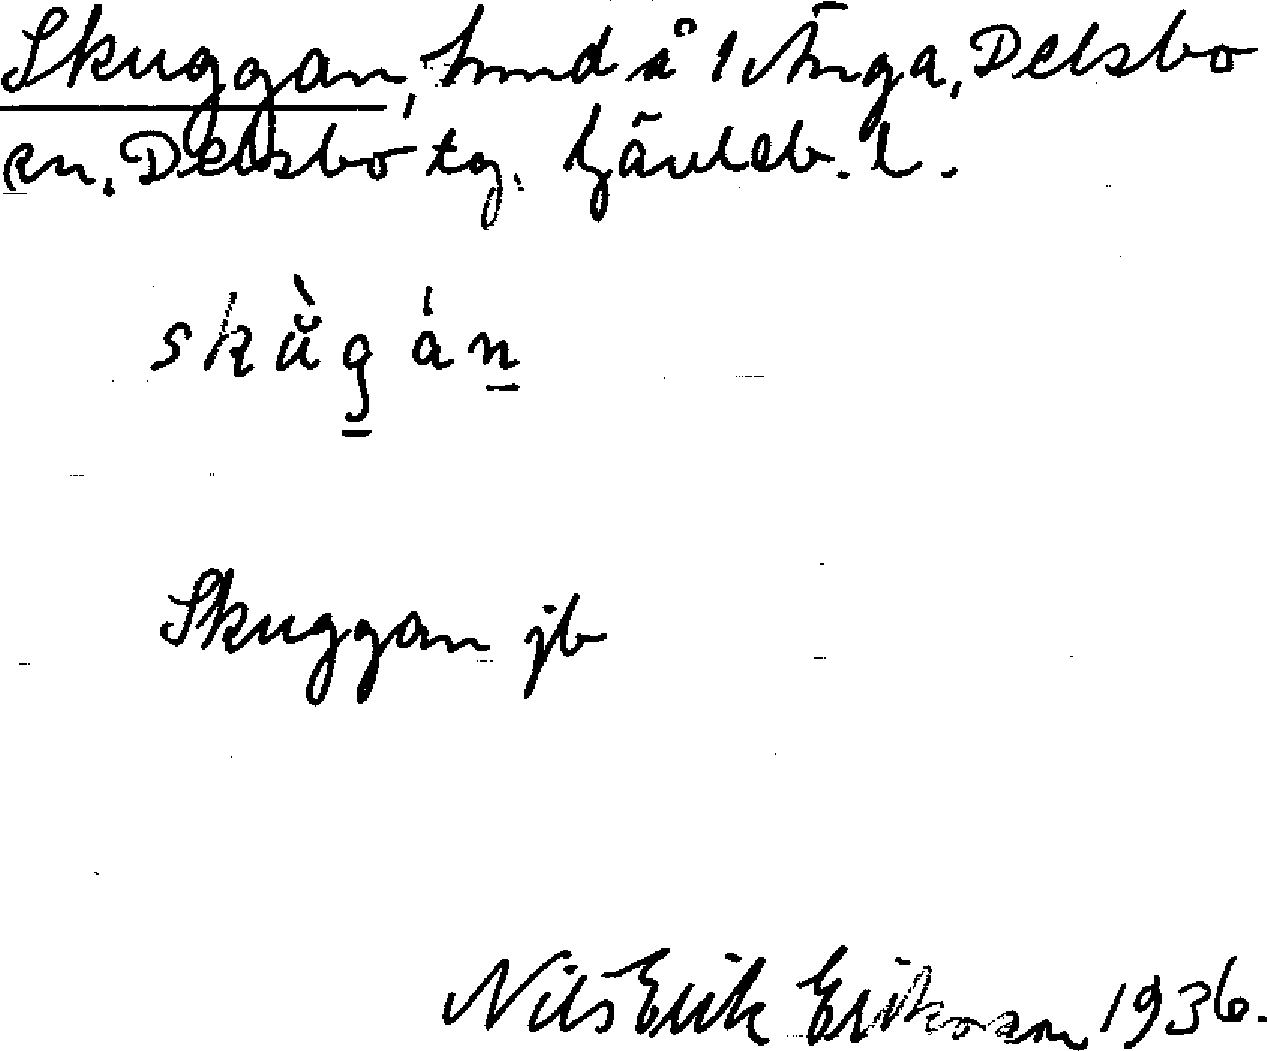 Skuggan, hmd å 1 Änga, Delsbo
sn, Delsbo tg. Gävleb. l.
skŭ̀gán
Skuggan jb
Nils Erik Eriksson 1936.